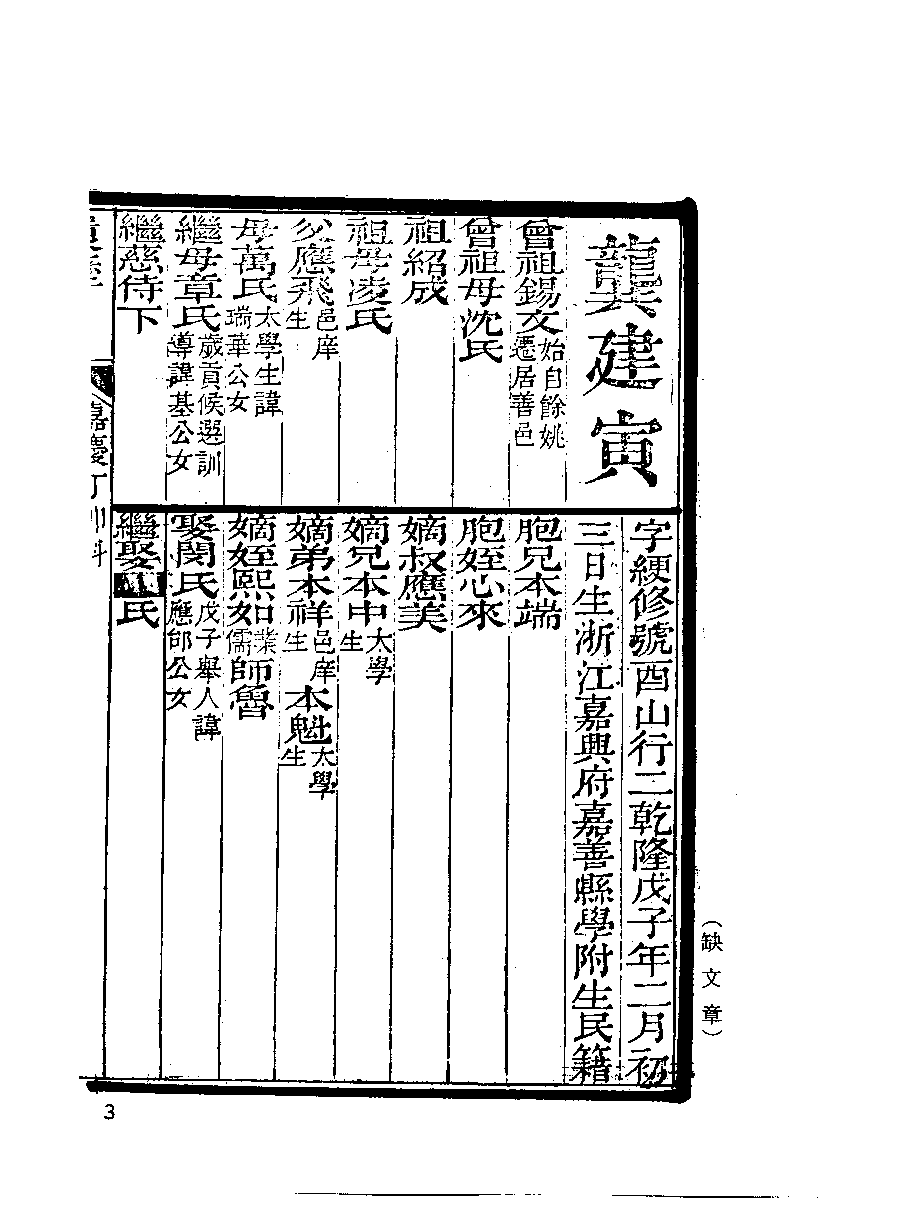 龔建寅
字綆修號酉山行二乾隆戊子年二月初
三日生浙江嘉興府嘉善縣學附生民籍
曾祖錫文始自餘姚遷居善邑
曾祖母沈氏
祖紹成
祖母凌氏
父應飛邑庠生
母萬氏太學生諱瑞華公女
繼母章氏歲貢候選訓導諱基公女
繼慈侍下
胞兄本端
胞姪心來
嫡叔應美
嫡兄本中太學生
嫡弟本祥邑庠生本魁太學生
嫡姪熙如業儒師魯
娶閔氏戊子舉人諱應邰公女
繼娶氏
嘉慶丁
(缺文章)
3